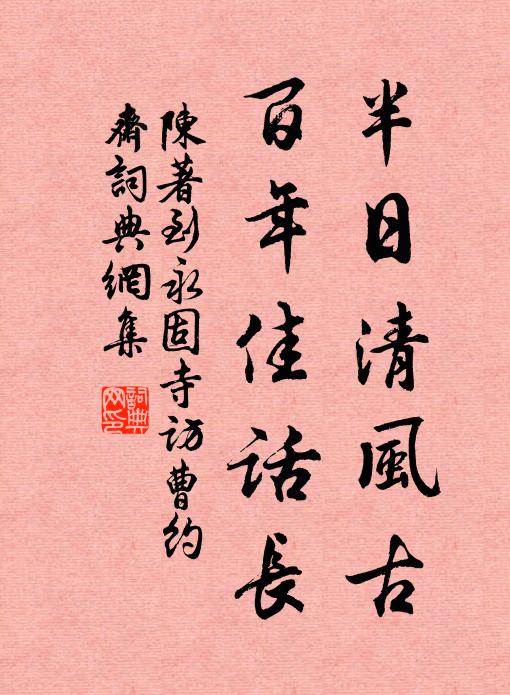 半日清風古
百年佳話長
陳著到永固寺訪曹約
齋詞典網集
詞典网印